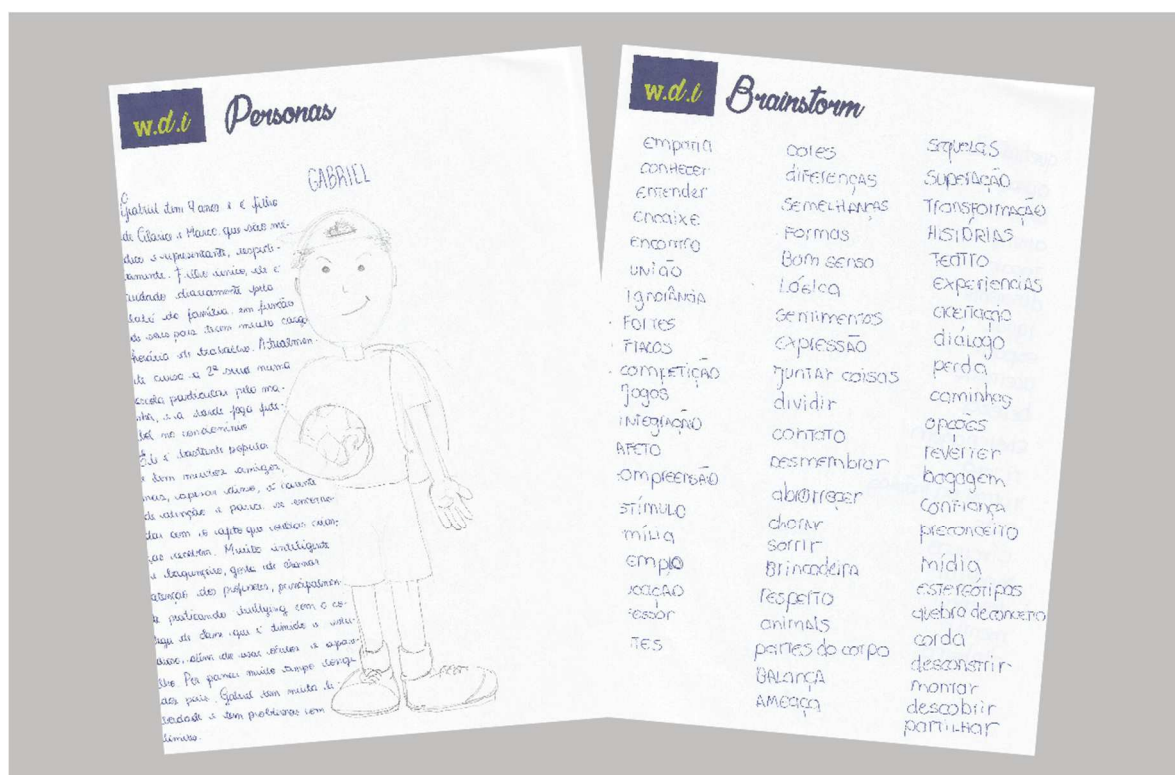 w.d.i Personas
GABRIEL
Gabriel tem 9 anos e é filho
de Clarice e Marco, que são mé-
dica e representante, respecti-
vamente. Filho único, ele é
cuidado diariamente pela
babá da família, em função
de seus pais terem muita carga
horária de trabalho. Atualmen-
te cursa a 2ª série numa
escola particular pela ma-
nhã, e à tarde joga fute-
bol no condomínio
Ele é bastante popular
e tem muitos amigos,
mas, apesar disso, é carente
de atenção e parece se incomo-
dar com o afeto que outras crian-
ças recebem. Muito inteligente
e bagunceiro, gosta de chamar
atenção dos professores, principalmen-
te praticando bullying com o co-
lega de classe que é tímido e
além de usar óculos e apare-
lho. Por passar muito tempo longe
dos pais, Gabriel tem muita li-
berdade e tem problemas com
limites.
w.d.i Brainstorm
empatia
conhecer
entender
encaixe
encontro
união
ignorância
fortes
fracos
competição
jogos
integração
AFETO
ompreensão
stímulo
mília
emplo
cação
essor
tes
cores
diferenças
semelhanças
formas
Bom senso
Lógica
sentimentos
expressão
juntar coisas
dividir
contato
desmembrar
aborrecer
chorar
sorrir
Brincadeira
respeito
animais
partes do corpo
BALANÇA
AMEAÇA
sequelas
superação
transformação
histórias
teatro
experiencias
aceitação
diálogo
perda
caminhos
opções
reverter
bagagem
confiança
preconceito
mídia
estereótipos
quebra de conceito
corda
desconstrir
montar
descobrir
partilhar